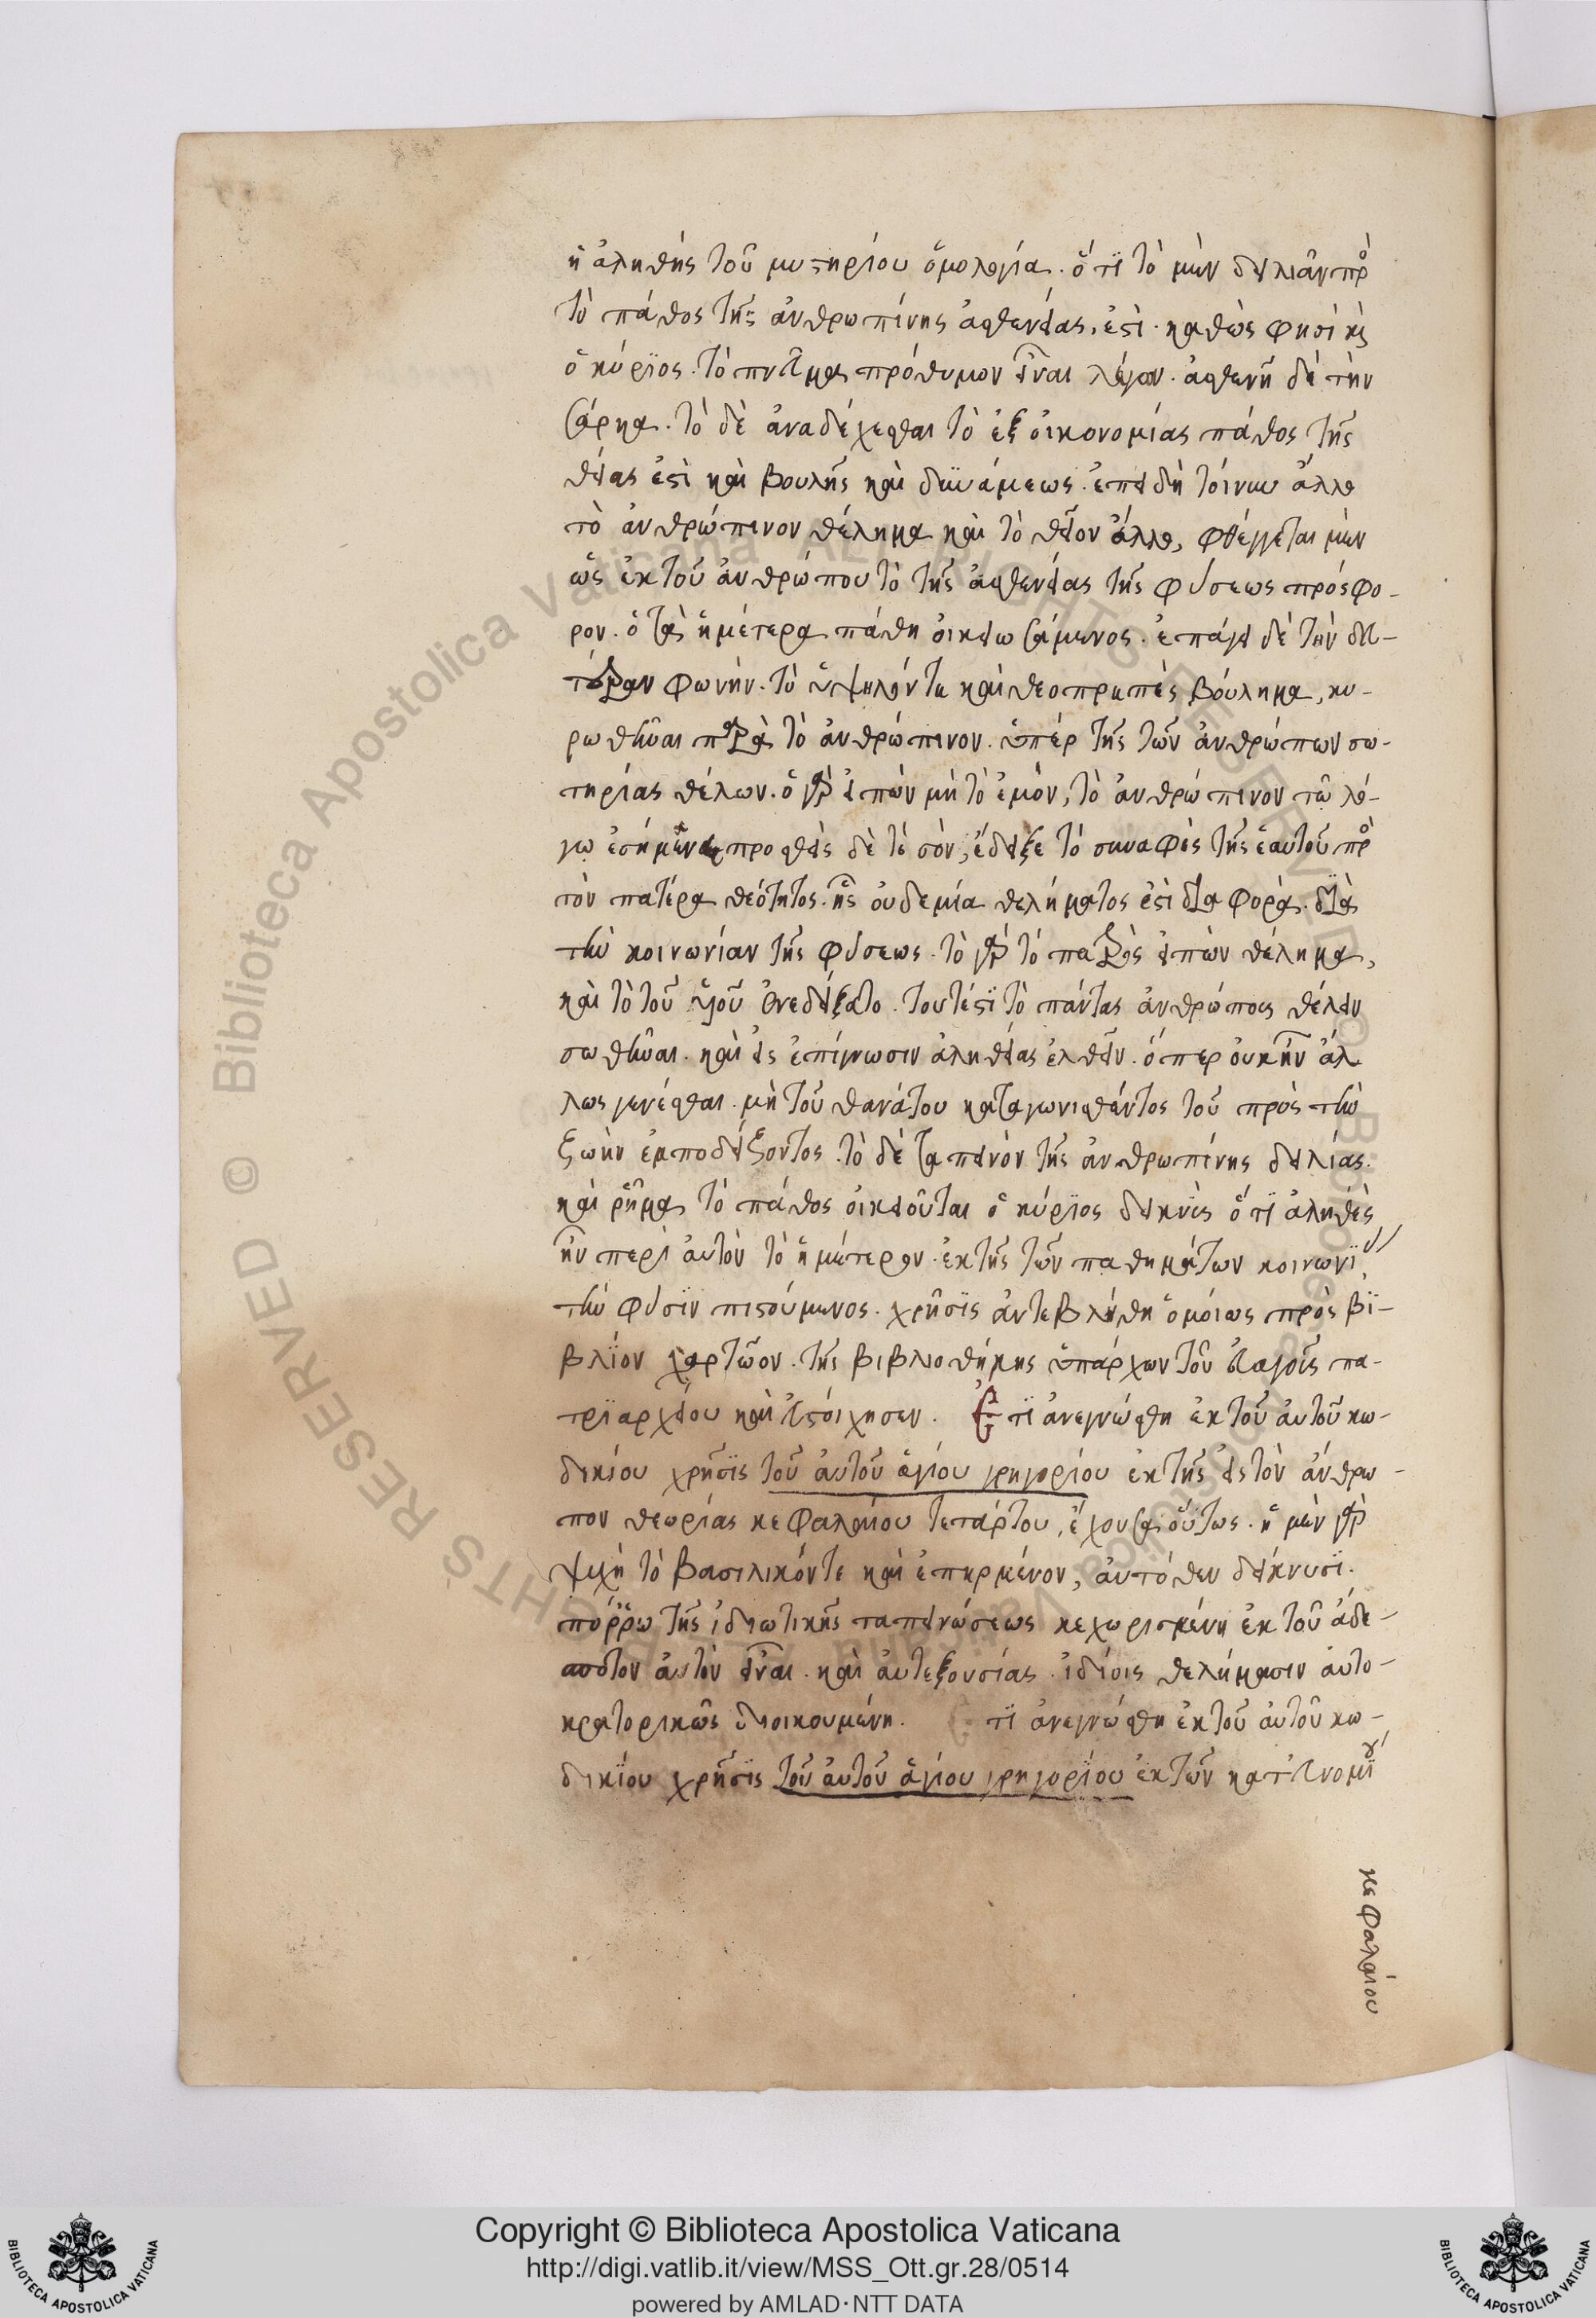 ἡ ἀληθὴς τοῦ μυστηρίου ὁμολογία. ὅτϊ τὸ μὲν δειλιᾶν πρὸ
τὸ πάθος τῆς ἀνθρωπίνης ἀσθενείας. ἐστὶ. καθὼς φησὶ καὶ
ὁ κύρϊος. τὸ πνεῦμα πρόθυμον εἶναι λέγων. ἀσθενῆ δὲ τὴν
σάρκα. τὸ δὲ ἀναδέχεσθαι τὸ ἐξ οἰκονομίας πάθος τῆς
θείας ἐστὶ καὶ βουλῆς καὶ δυνάμεως. ἐπειδὴ τοίνυν ἄλλο
τὸ ἀνθρώπινον θέλημα καὶ τὸ θεῖον ἄλλο, φθέγγεται μὲν
ὡς ἐκ τοῦ ἀνθρώπου τὸ τῆς ἀσθενείας τῆς φύσεως πρόσφο-
ρον. ὁ τὰ ἡμέτερα πάθη οἰκειωσάμενος. ἐπάγει δὲ τὴν δευ-
τέραν φωνὴν. τὸ ὑψηλόν τε καὶ θεοπρεπὲς βούλημα, κυ-
ρωθῆναι παρὰ τὸ ἀνθρώπινον. ὑπὲρ τῆς τῶν ἀνθρώπων σω-
τηρίας θέλων. ὁ γὰρ εἰπὼν μὴ τὸ ἐμὸν, τὸ ἀνθρώπινον τῷ λό-
γῳ ἐσήμανε προσθεὶς δὲ τὸ σὸν, ἔδειξε τὸ συναφὲς τῆς ἑαυτοῦ πρὸ
τὸν πατέρα θεότητος. ἧς οὐδεμία θελήματος ἐστὶ διαφορὰ. διὰ
τὴν κοινωνίαν τῆς φύσεως. τὸ γὰρ τὸ πατρὸς εἰπὼν θέλημα,
καὶ τὸ τοῦ υἱοῦ ἐνεδείξατο. τουτέστϊ τὸ πάντας ἀνθρώπους θέλειν
σωθῆναι. καὶ εἰς ἐπίγνωσιν ἀληθείας ἐλθεῖν. ὅπερ οὐκ ἦν ἄλ
λως γενέσθαι. μὴ τοῦ θανάτου καταγωνισθέντος τοῦ πρὸς τὴν
ζωὴν ἐμποδίζοντος. τὸ δὲ ταπεινὸν τῆς ἀνθρωπίνης δειλίας.
καὶ ῥῆμα τὸ πάθος οἰκειοῦται ὁ κύρϊος δεικνὺς ὅτϊ ἀληθὲς
ἦν περὶ αὐτὸν τὸ ἡμέτερον. ἐκ τῆς τῶν παθημάτων κοινωνί
τὴν φύσϊν πιστούμενος. χρῆσϊς ἀντεβλήθη ὁμοίως πρὸς βϊ-
βλϊον χαρτῶον. τῆς βιβλιοθήκης ὑπάρχων τοῦ εὐαγοῦς πα-
τρϊαρχείου καὶ ἐστοίχησεν. Ἔτϊ ἀνεγνώσθη ἐκ τοῦ αὐτοῦ κω-
δικίου χρῆσϊς τοῦ αὐτοῦ ἁγίου γρηγορίου ἐκ τῆς εἰς τὸν ἄνθρω-
πον θεωρίας κεφαλαίου τετάρτου, ἔχουσα οὕτως. ἡ μὲν γὰρ
ψυχὴ τὸ βασιλικόν τε καὶ ἐπηρμένον, αὐτόθεν δείκνυσϊ.
πόῤῥω τῆς ἰδιωτικῆς ταπεινώσεως κεχωρισμένη ἐκ τοῦ ἀδέ-
σποτον αὐτὸν εἶναι. καὶ αὐτεξουσίας. ἰδίοις θελήμασιν αὐτο-
κρατορικῶς διοικουμένη. τϊ ἀνεγνώσθη ἐκ τοῦ αὐτοῦ κω-
δικϊου χρῆσϊς τοῦ αὐτοῦ ἁγίου γρηγορϊου ἐκ τῶν κατ' εὐνομϊ
κεφαλαίου
Copyright © Biblioteca Apostolica Vaticana
http://digi.vatlib.it/view/MSS_Ott.gr.28/0514
powered by AMLAD·NTT DATA
BIBLIOTECA APOSTOLICA VATICANA
BIBLIOTECA APOSTOLICA VATICANA